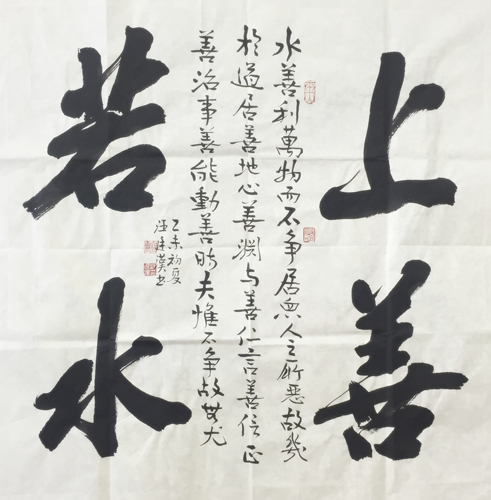 上善
若水
水善利萬物而不争居众人之所惡故幾
於道居善地心善渊与善仁言善信正
善治事善能動善時夫惟不争故無尤
乙未初夏
漢书